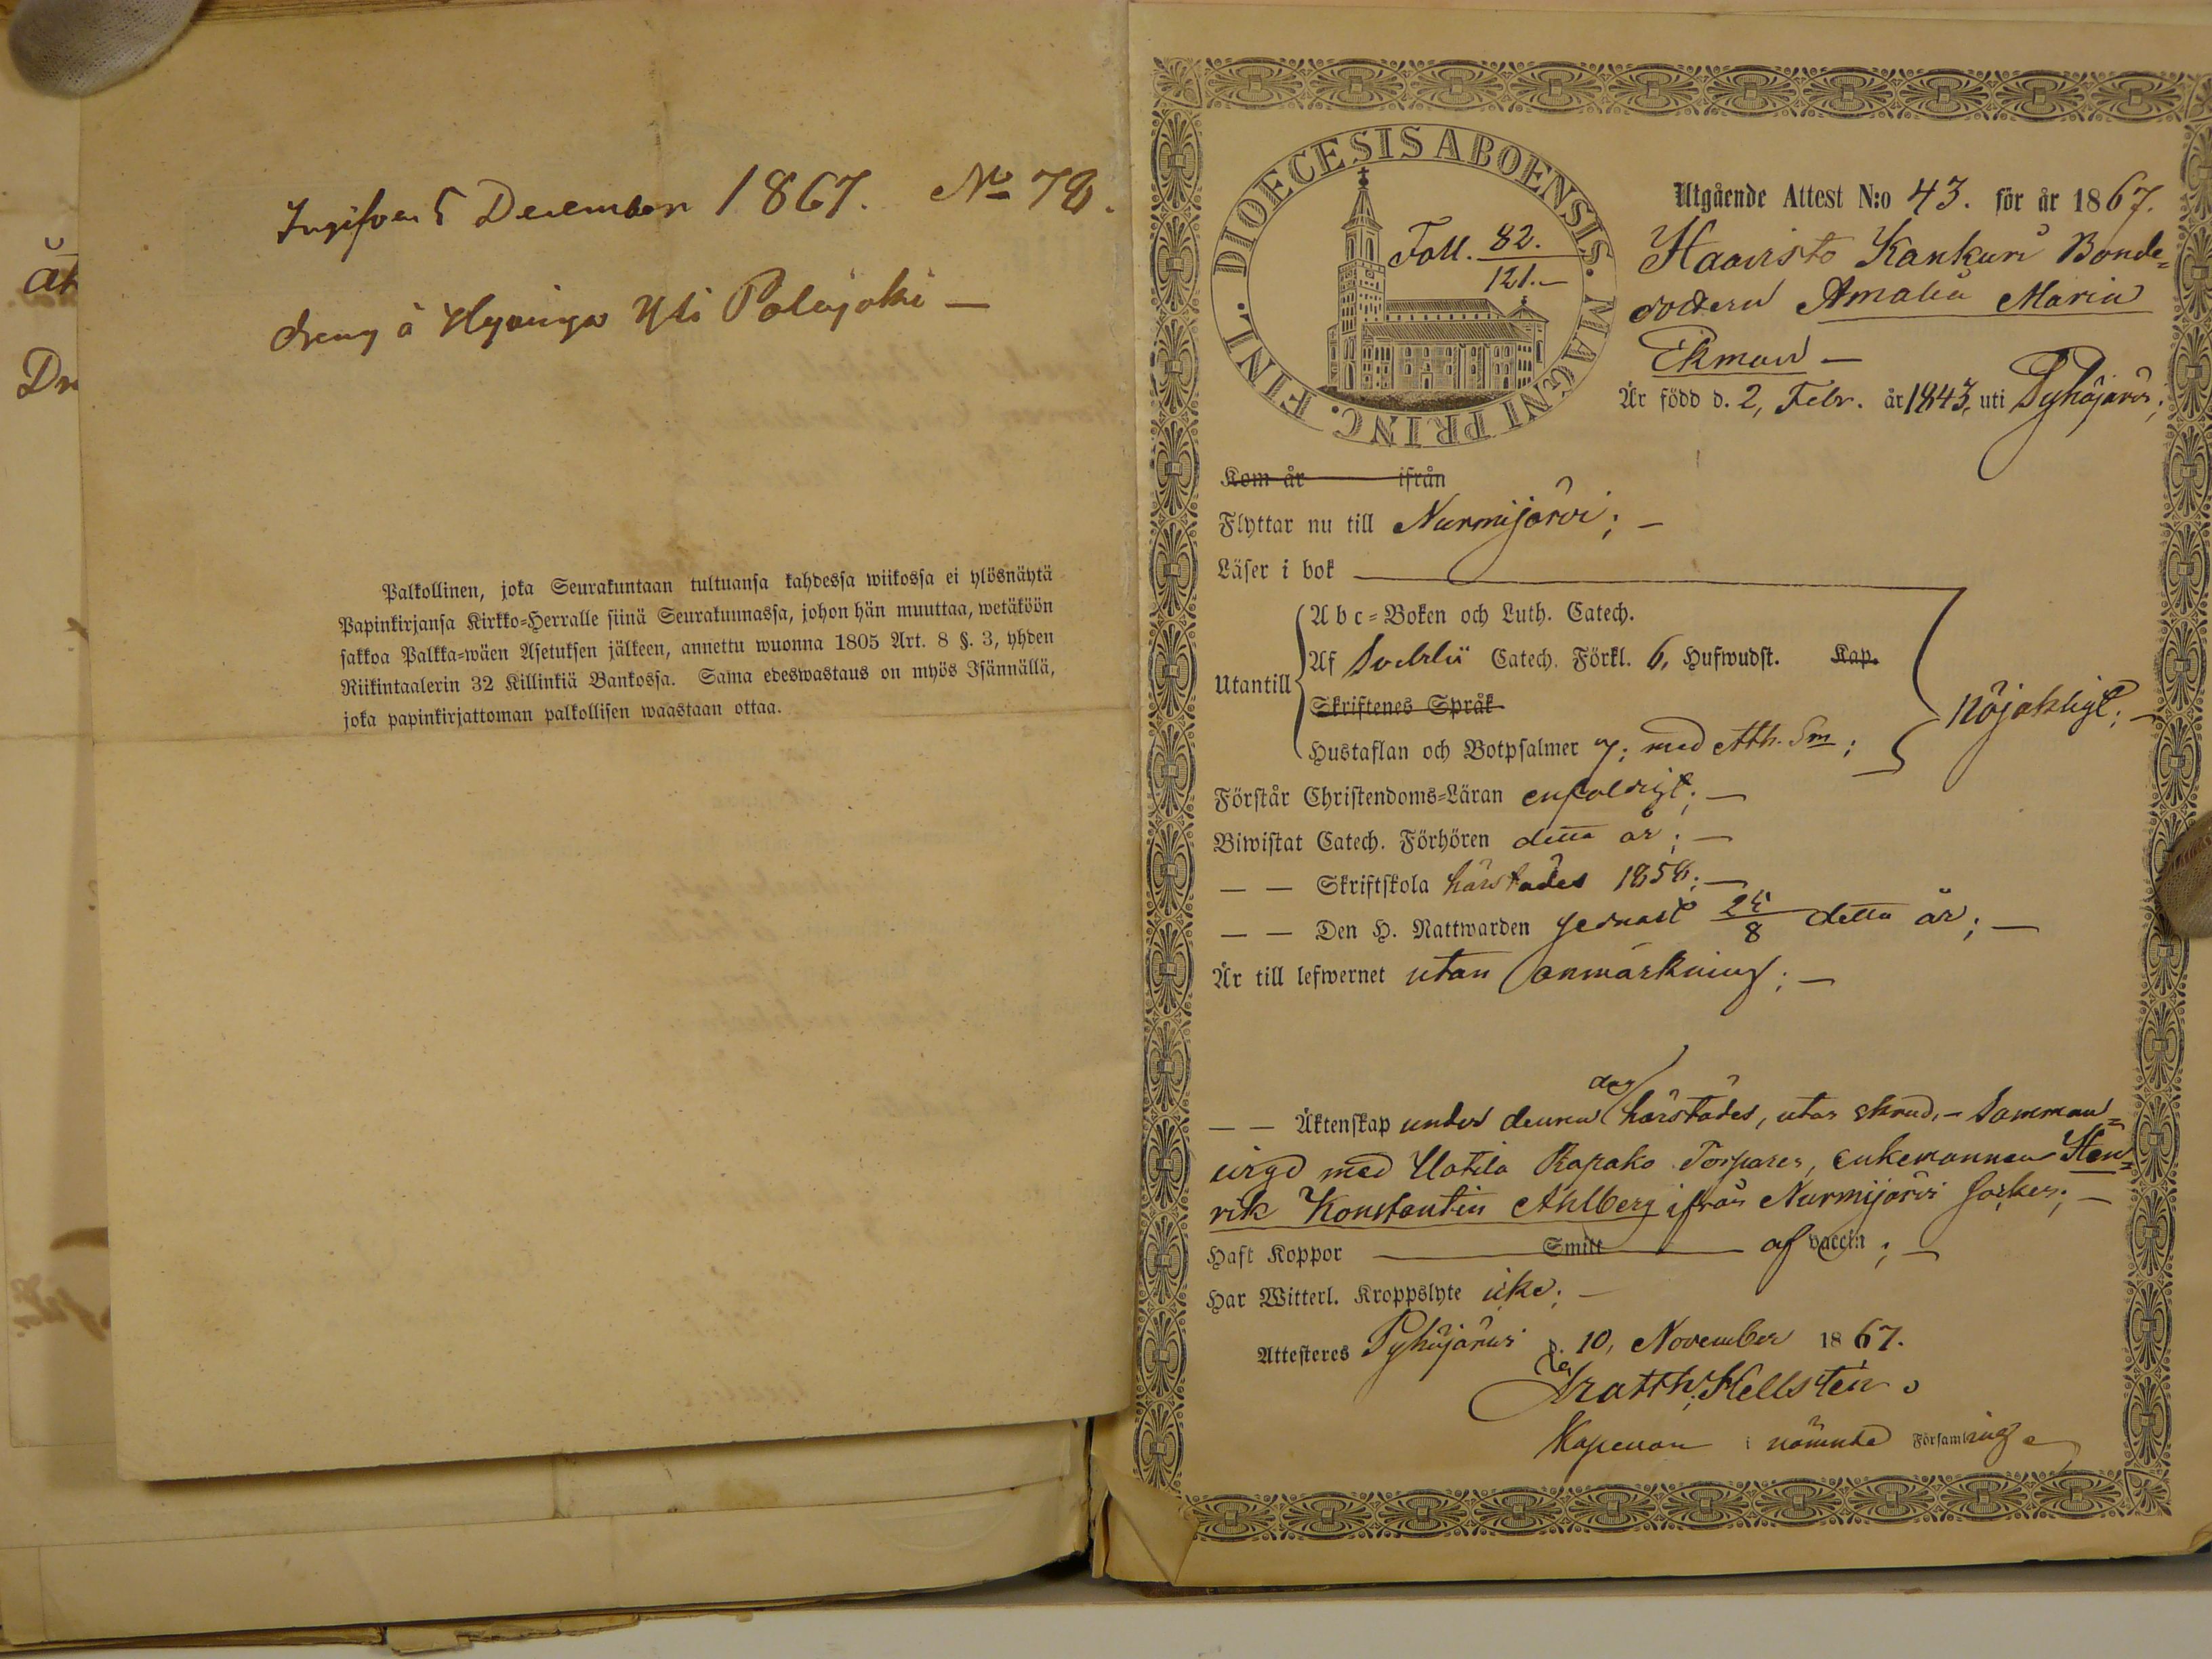 Ingifven 5 December 1867. No 78.
dreng å Hyvinge Yli Palojoki —
Palkollinen, joka Seurakuntaan tultuansa kahdessa wiikossa ei ylösnäytä
Papinkirjansa Kirkko=Herralle siinä Seurakunnassa, johon hän muuttaa, wetäköön
sakkoa Palkka=wäen Asetuksen jälkeen, annettu wuonna 1805 Art. 8 §. 3, yhden
Riikintaalerin 32 Killinkiä Bankossa. Sama edeswastaus on myös Isännällä,
joka papinkirjattoman palkollisen waastaan ottaa.
DIOECESIS ABOENSIS. MAGNI PRINC. FINL.
Foll. 82.
121.—
Utgående Attest N:o 43. för år 1867.
Haavisto Kankuri Bonde=
dottern Amalia Maria
Ekman —
Är född d. 2, Febr. år 1843, uti Pyhäjärvi;
Kom år ifrån
Flyttar nu till Nurmijärvi; —
Läser i bok
Utantill
A b c=Boken och Luth. Catech.
Af Svebelii Catech. Förkl. 6, Hufwudst. Kap.
Skriftenes Språk
Hustaflan och Botpsalmer 7; med Ath. Sm;
nöjaktligt; —
Förstår Christendoms=Läran enfaldigt; —
Biwistat Catech. Förhören detta år; —
— — Skriftskola härstädes 1858; —
— — Den H. Nattwarden senast 25/8 detta år; —
Är till lefwernet utan anmärkning; —
— — Äktenskap under denna dag härstädes, utan skrud, — Samman=
vigd med Uotila Rapako Torpares, enkemannen Hen=
rik Konstantin Ahlberg ifrån Nurmijärvi Socken; —
Haft Koppor Smitt af vaccin; —
Har Witterl. Kroppslyte icke; —
Attesteras Pyhäjärvi d. 10, November 1867.
Hellstén.
Kapellan i nämnde Församling